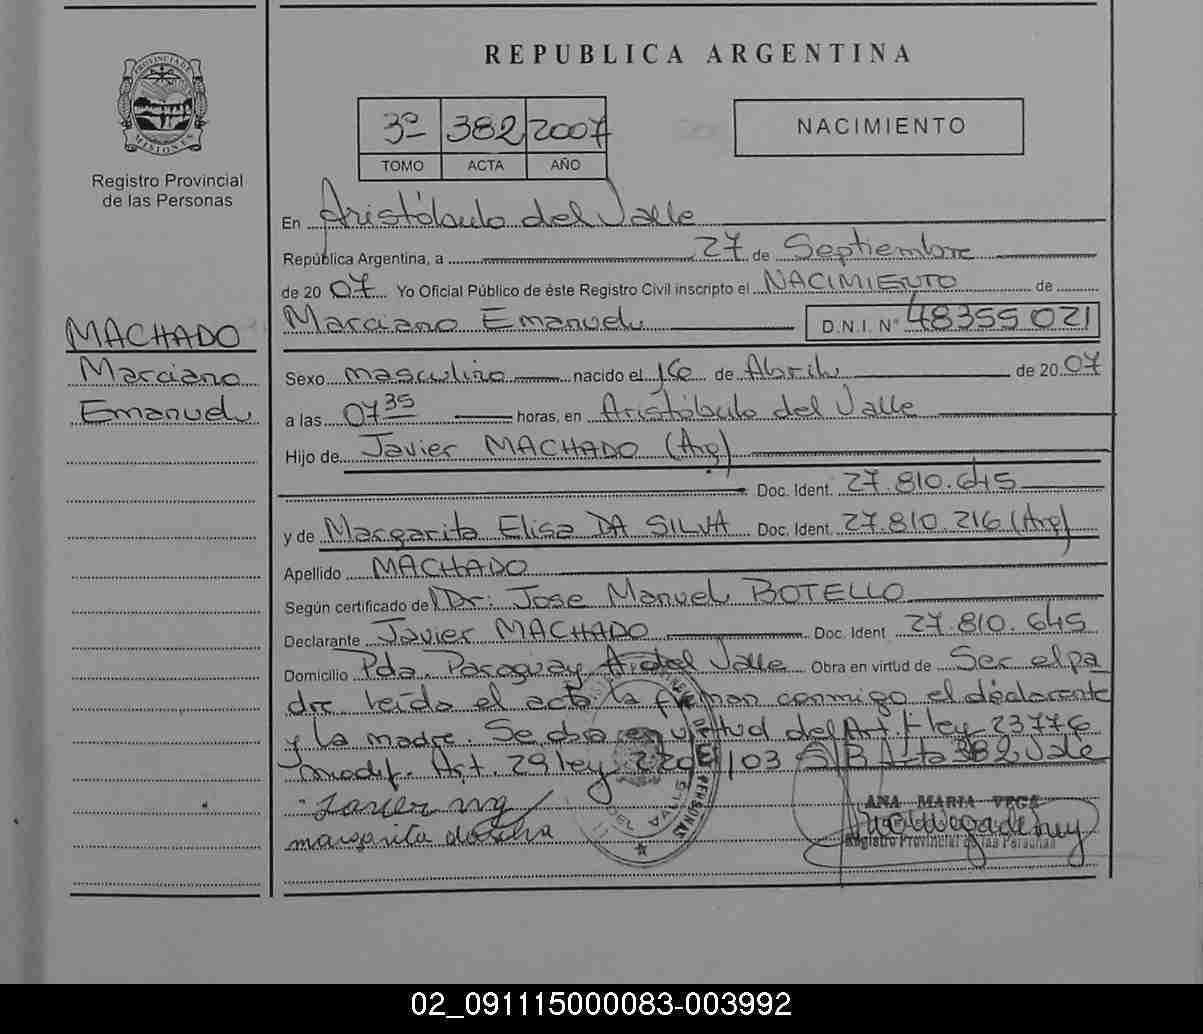 REPUBLICA ARGENTINA
PROVINCIA DE
MISIONES
Registro Provincial
de las Personas
3º 382 2007
TOMO ACTA AÑO
NACIMIENTO
En Aristóbulo del Valle
República Argentina, a 27 de Septiembre
de 2007 Yo Oficial Público de éste Registro Civil inscripto el NACIMIENTO de
Marciano Emanuel D.N.I. Nº 48355021
MACHADO
Marciano
Emanuel
Sexo masculino nacido el 16 de Abril de 2007
a las 07 35 horas, en Aristóbulo del Valle
Hijo de Javier MACHADO (Arg)
Doc. Ident. 27.810.645
y de Margarita Elisa DA SILVA Doc. Ident. 27.810.216 (Arg)
Apellido MACHADO
Según certificado de Dr. Jose Manuel BOTELLO
Declarante Javier MACHADO Doc. Ident 27.810.645
Domicilio Pda. Paraguay A. del Valle Obra en virtud de Ser el pa
dre leída el acta la firman conmigo el declarante
y la madre. Se obra en virtud del Art. 1 ley 23776
modif. Art. 29 ley S/B Acta 382 Vale
Javier
margarita da silva
ANA MARIA VEGA
Registro Provincial de las Personas
02_091115000083-003992